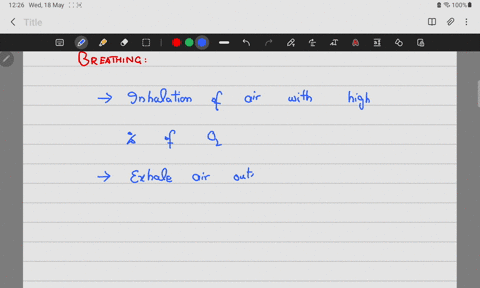 12:26 Wed, 18 May
100%
Title
BREATHING:
→ Inhalation of air with high
% of O₂
→ Exhale air outs